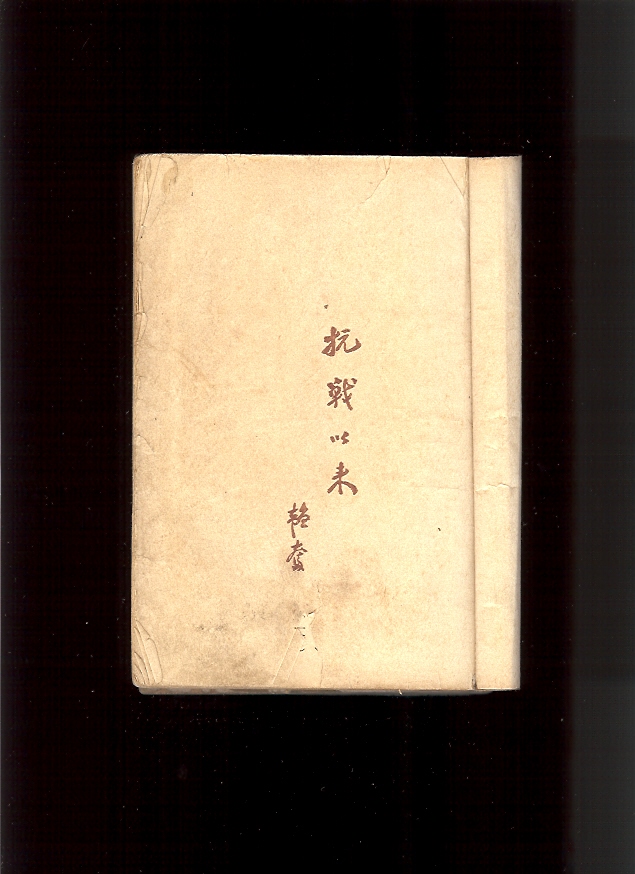 抗戰以来
韜奮